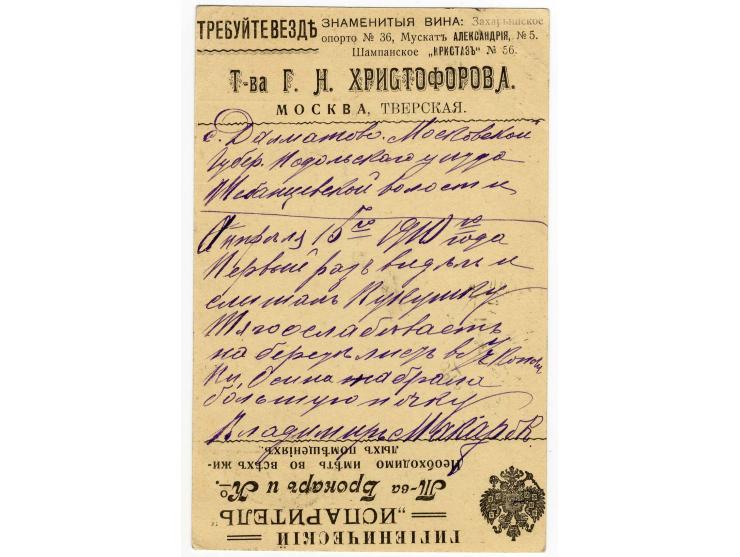 ТРЕБУЙТЕ ВЕЗДѢ
ЗНАМЕНИТЫЯ ВИНА: Захарьинское
опорто № 36, Мускатъ АЛЕКСАНДРІЯ, № 5.
Шампанское „КРИСТАЗЪ“ № 56.
Т-ва Г. Н. ХРИСТОФОРОВА.
МОСКВА, ТВЕРСКАЯ.
с. Далматово. Московской
Губер. Подольского уезда
волости
Апреля 15го 1910го года
Первый разъ видѣл и
слышалъ Кукушку
на березѣ листъ в
Осина набрала
большую почку
Владимиръ
Необходимо имѣть во всѣхъ жи-
лыхъ помѣщеніяхъ.
Т-ва Брокаръ и Ко.
„ИСПАРИТЕЛЬ“
ГИГІЕНИЧЕСКІЙ